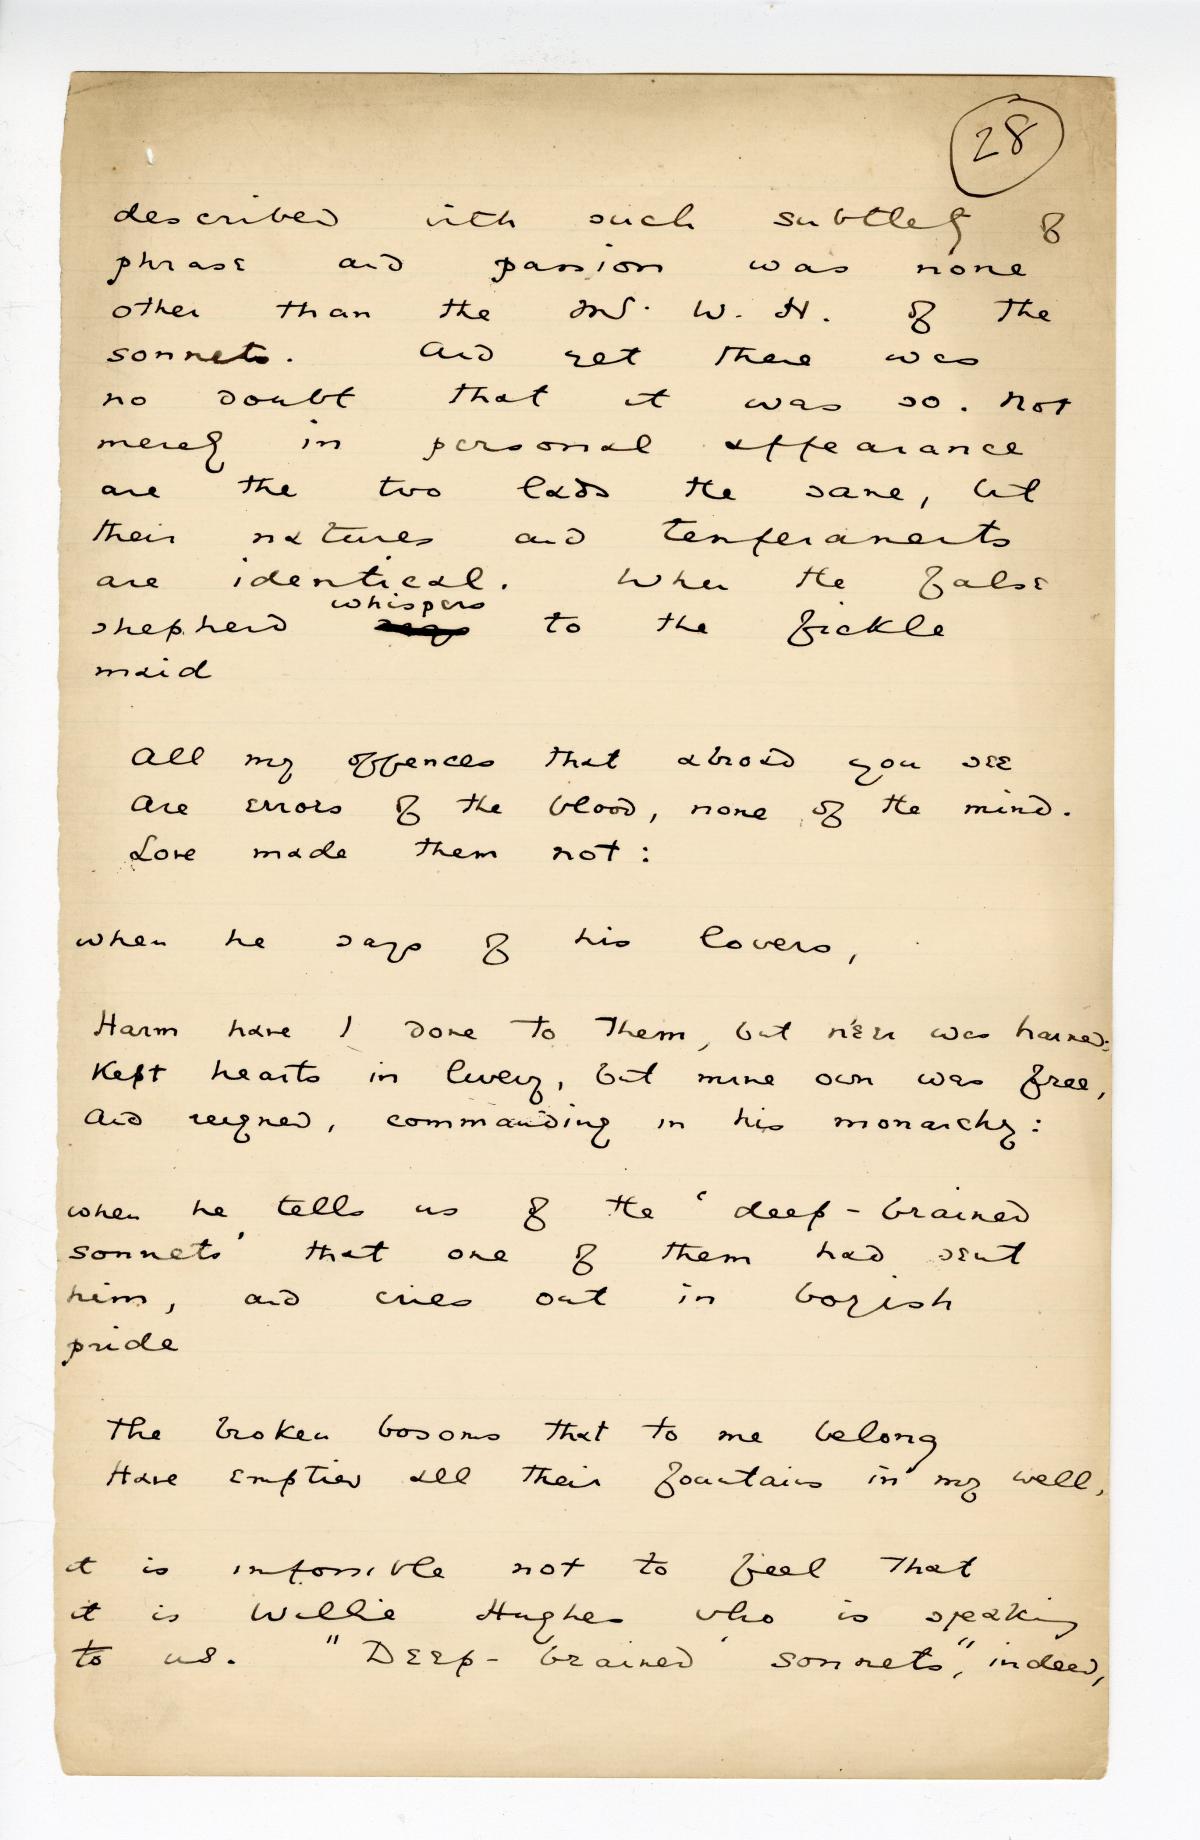 28
described with such subtlety of
phrase and passion was none
other than the Mr. W. H. of the
sonnets. And yet there was
no doubt that it was so. Not
merely in personal appearance
are the two lads the same, but
their natures and temperaments
are identical. When the false
whispers
shepherd says to the fickle
maid
All my offences that abroad you see
Are errors of the blood, none of the mind.
Love made them not:
when he says of his lovers,
Harm have I done to them, but n'er was harmed:
Kept hearts in livery, but mine own was free,
And reigned, commanding in his monarchy:
when he tells us of the 'deep-brained
sonnets' that one of them had sent
him, and cries out in boyish
pride
The broken bosoms that to me belong
Have emptied all their fountains in my well,
it is impossible not to feel that
it is Willie Hughes who is speaking
to us. "Deep-brained sonnets", indeed,